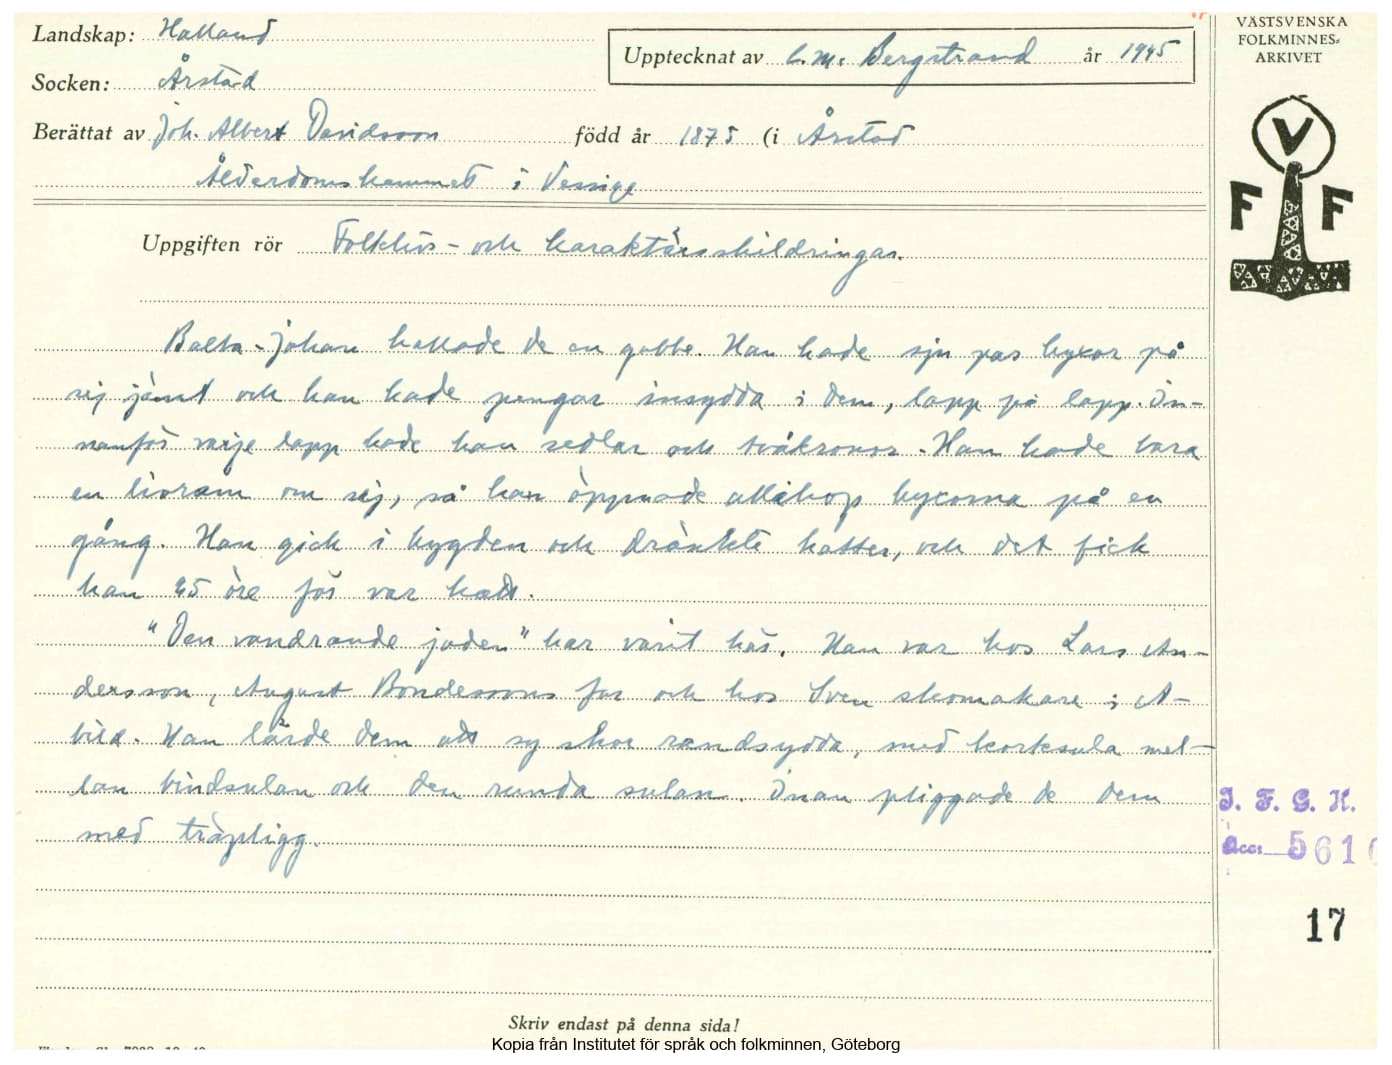 Landskap: Halland
Upptecknat av C. M. Bergstrand år 1945
Socken: Årstad
Berättat av Joh. Albert Davidsson född år 1875 (i Årstad
Ålderdomshemmet i Vessige
Uppgiften rör Folklivs- och karaktärsskildringar.
Balta-Johan kallade de en gubbe. Han hade sju par byxor på
sig jämt och han hade pengar insydda i dem, lapp på lapp. In-
nanför varje lapp hade han sedlar och tvåkronor. Han hade bara
en livrem om sig, så han öppnade allihop byxorna på en
gång. Han gick i bygden och dränkte katter, och det fick
han 25 öre för var katt.
"Den vandrande juden" har varit här. Han var hos Lars An-
dersson, August Bondesons far och hos Sven skomakare i A-
bild. Han lärde dem att sy skor randsydda, med korksula mel-
lan bindsulan och den runda sulan. Innan pliggade de dem
med träpligg.
Skriv endast på denna sida!
Kopia från Institutet för språk och folkminnen, Göteborg
VÄSTSVENSKA
FOLKMINNES-
ARKIVET
V
F F
I. F. G. H.
Acc: 561
17